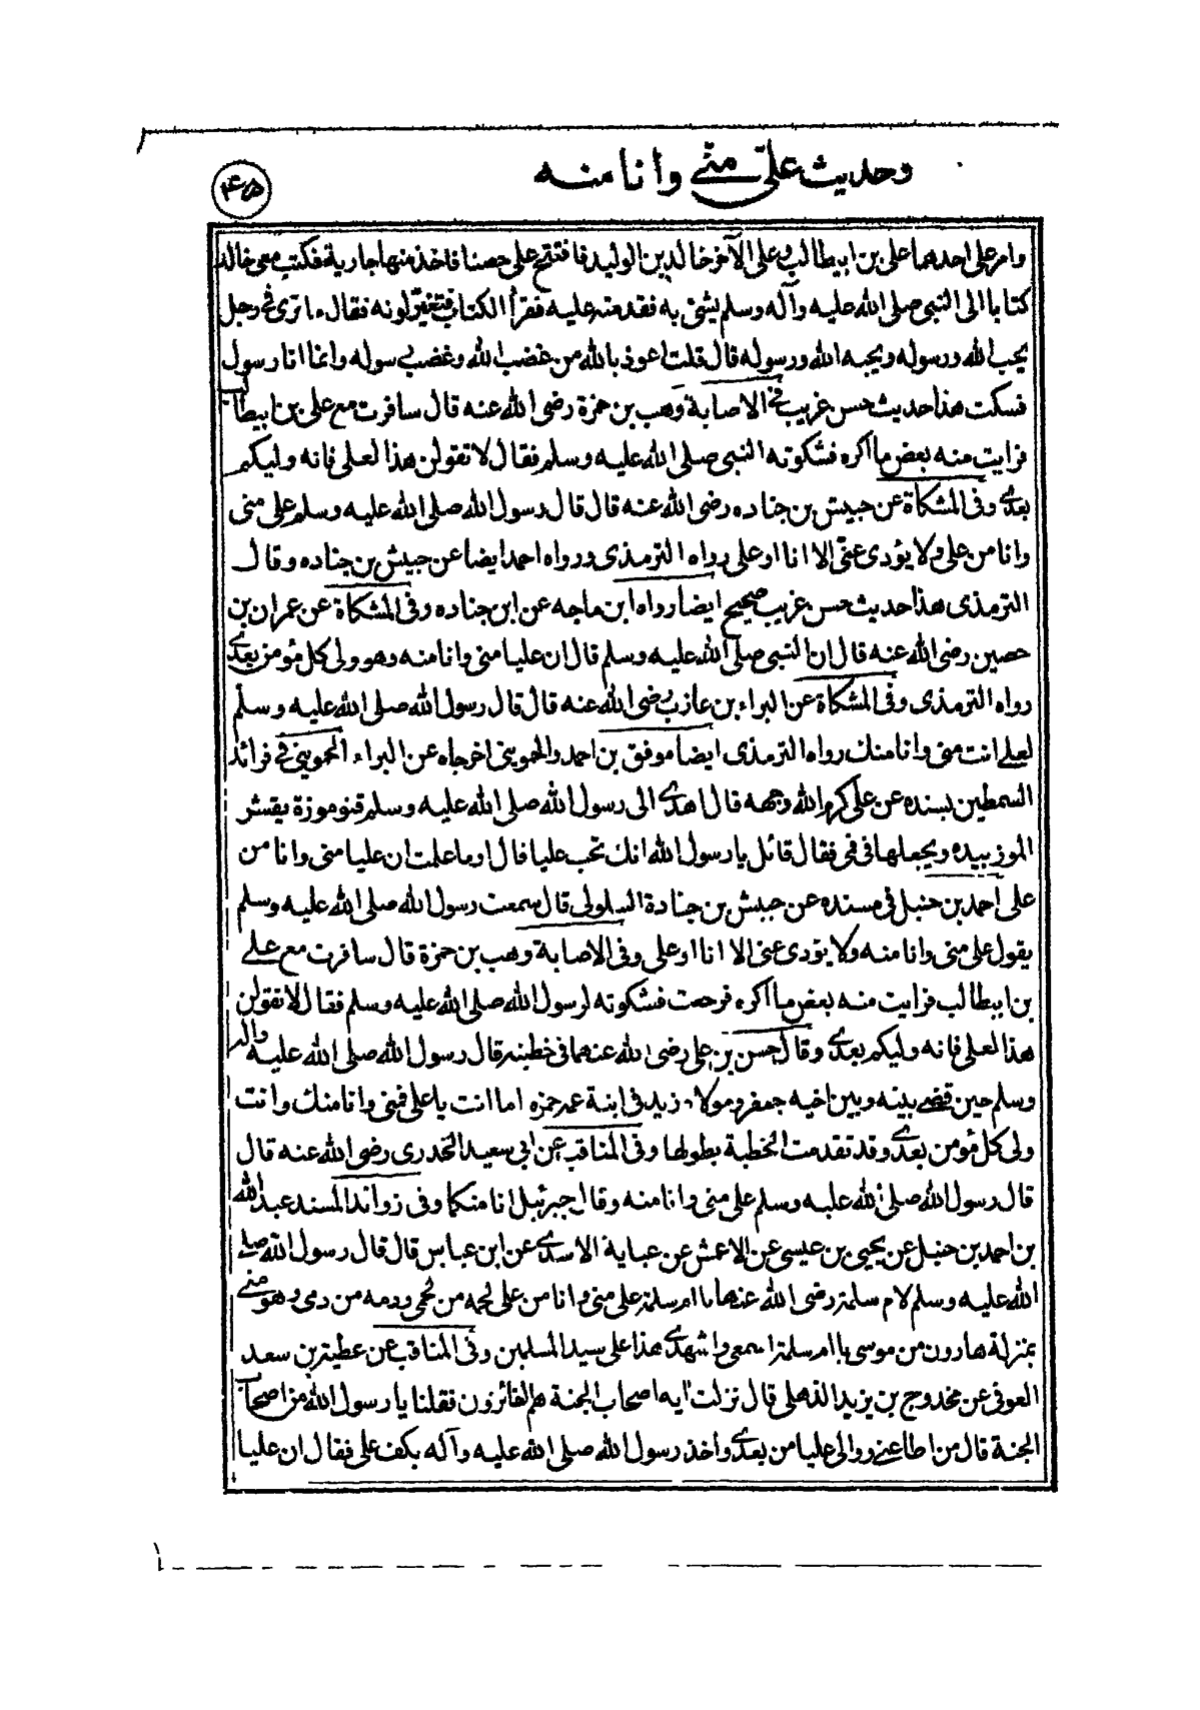 وحديث علىّ منّے وانا منه
۴۵
وامر على احدهما على بن ابيطالب وعلى الآخر خالد بن الوليد فافتتح على حصنا فاخذ منها جارية فكتب معى خالد
كتابا الى النبى صلى الله عليه وآله وسلم يشى به فقدمته عليه فقرأ الكتاب فتغيّر لونه فقال ما ترى فى رجل
يحب الله ورسوله ويحبه الله ورسوله قال قلت اعوذ بالله من غضب الله وغضب رسوله وانما انا رسول
فسكت هذا حديث حسن غريب فى الاصابة وهب بن حمزة رضى الله عنه قال سافرت مع على بن ابيطالب
فرايت منه بعض ما اكره فشكوته النبى صلى الله عليه وسلم فقال لا تقولن هذا لعلى فانه وليكم
بعدے وفى المشكاة عن حبيش بن جناده رضى الله عنه قال قال رسول الله صلى الله عليه وسلم على منى
وانا من على ولا يؤدى عنّى الا انا او على رواه الترمذى ورواه احمد ايضا عن حبيش بن جناده وقال
الترمذى هذا حديث حسن غريب صحيح ايضا رواه ابن ماجه عن ابن جناده وفى المشكاة عن عمران بن
حصين رضى الله عنه قال ان النبى صلى الله عليه وسلم قال ان عليا منى وانا منه وهو ولى كل مؤمن بعدے
رواه الترمذى وفى المشكاة عن البراء بن عازب رضى الله عنه قال قال رسول الله صلى الله عليه وسلم
لعلى انت منى وانا منك رواه الترمذى ايضا موفق بن احمد والحموينى اخرجاه عن البراء الحموينى فى فرائد
السمطين بسنده عن على كرم الله وجهه قال اهدے الى رسول الله صلى الله عليه وسلم قنو موزة يقشر
الموز بيده ويجعلها فى فمى فقال قائل يا رسول الله انك تحب عليا قال اوما علمت ان عليا منى وانا من
على احمد بن حنبل فى مسنده عن حبيش بن جنادة السلولى قال سمعت رسول الله صلى الله عليه وسلم
يقول على منى وانا منه ولا يؤدى عنى الا انا او على وفى الاصابة وهب بن حمزة قال سافرت مع علے
بن ابيطالب فرايت منه بعض ما اكره فرجعت فشكوته لرسول الله صلى الله عليه وسلم فقال لا تقولن
هذا لعلى فانه وليكم بعدے وقال حسن بن على رضى الله عنهما فى خطبته قال رسول الله صلى الله عليه واله
وسلم حين قضے بينه وبين اخيه جعفر ومولاه زيد فى ابنة عمه حمزه اما انت يا على فمنى وانا منك وانت
ولى كل مؤمن بعدے وقد تقدمت الخطبة بطولها وفى المناقب عن ابى سعيد الخدرى رضى الله عنه قال
قال رسول الله صلى الله عليه وسلم على منى وانا منه وقال جبرئيل انا منكما وفى زوائد المسند عبد الله
بن احمد بن حنبل عن يحيى بن عيسى عن الاعمش عن عباية الاسدے عن ابن عباس قال قال رسول الله صلى
الله عليه وسلم لام سلمة رضى الله عنها يا ام سلمة على منى وانا من على لحمه من لحمى ودمه من دمى وهو منے
بمنزلة هارون من موسى يا ام سلمة اسمعى واشهدے هذا على سيد المسلمين وفى المناقب عن عطية بن سعد
العوفى عن مخدوج بن يزيد الذهلى قال نزلت آيه اصحاب الجنة هم الفائزون فقلنا يا رسول الله من اصحاب
الجنة قال من اطاعنے ووالى عليا من بعدے واخذ رسول الله صلى الله عليه وآله بكف على فقال ان عليا